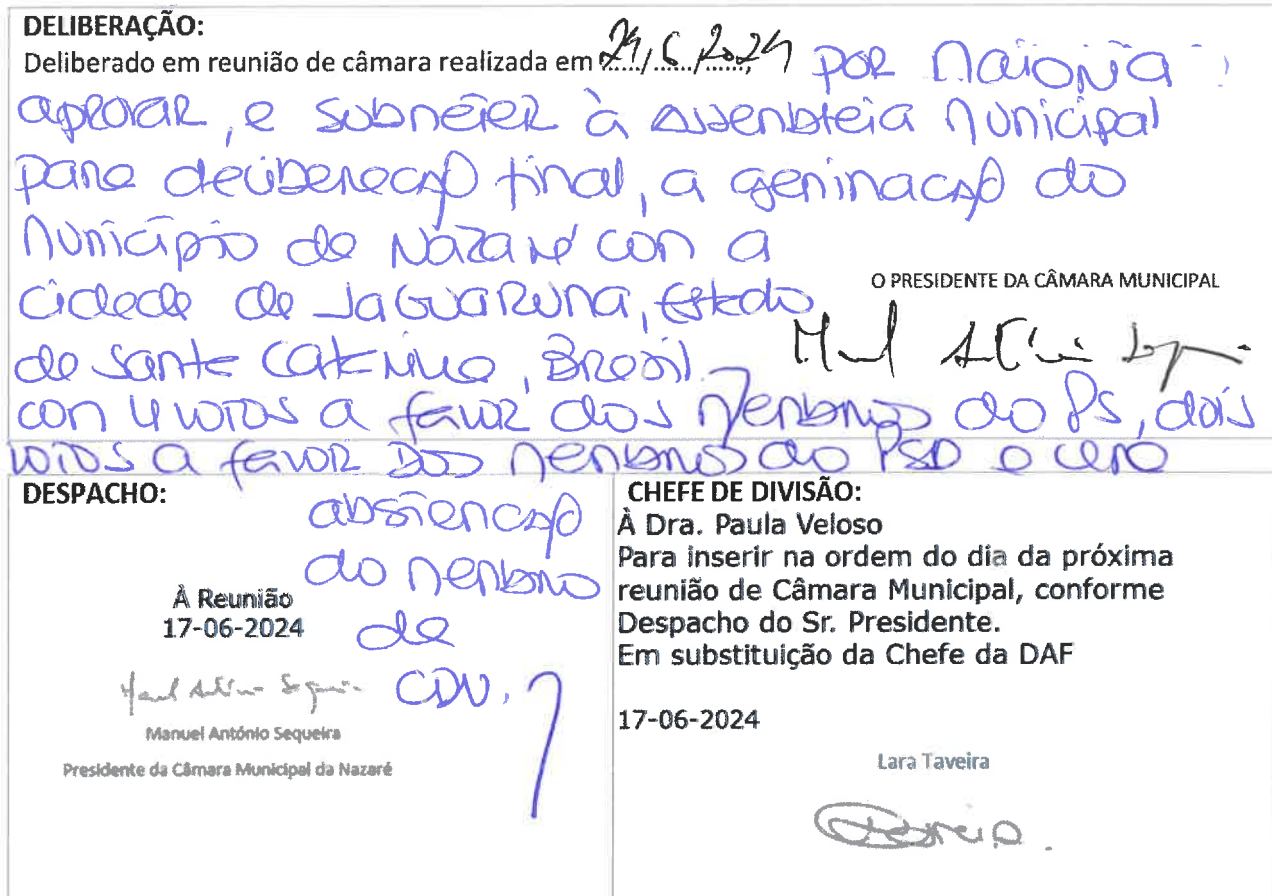 DELIBERAÇÃO:
Deliberado em reunião de câmara realizada em 24/6/2024 por maioria:
aprovar, e submeter à Assembleia Municipal
para deliberação final, a geminação do
Município de Nazaré com a
cidade de Jaguaruna, Estado
de Santa Catarina, Brasil
O PRESIDENTE DA CÂMARA MUNICIPAL
com 4 votos a favor dos membros do PS, dois
votos a favor dos membros do PSD e uma
abstenção
do membro
de
CDU.
DESPACHO:
À Reunião
17-06-2024
Manuel António Sequeira
Presidente da Câmara Municipal da Nazaré
CHEFE DE DIVISÃO:
À Dra. Paula Veloso
Para inserir na ordem do dia da próxima
reunião de Câmara Municipal, conforme
Despacho do Sr. Presidente.
Em substituição da Chefe da DAF
17-06-2024
Lara Taveira